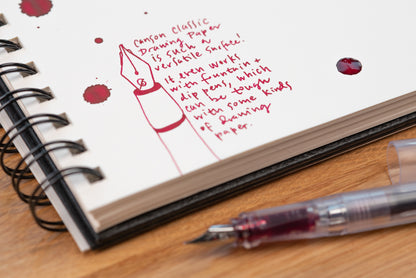 Canson Classic
Drawing Paper
is such a
versatile surface!
It even works
with fountain +
dip pens, which
can be tough
with some kinds
of drawing
paper.